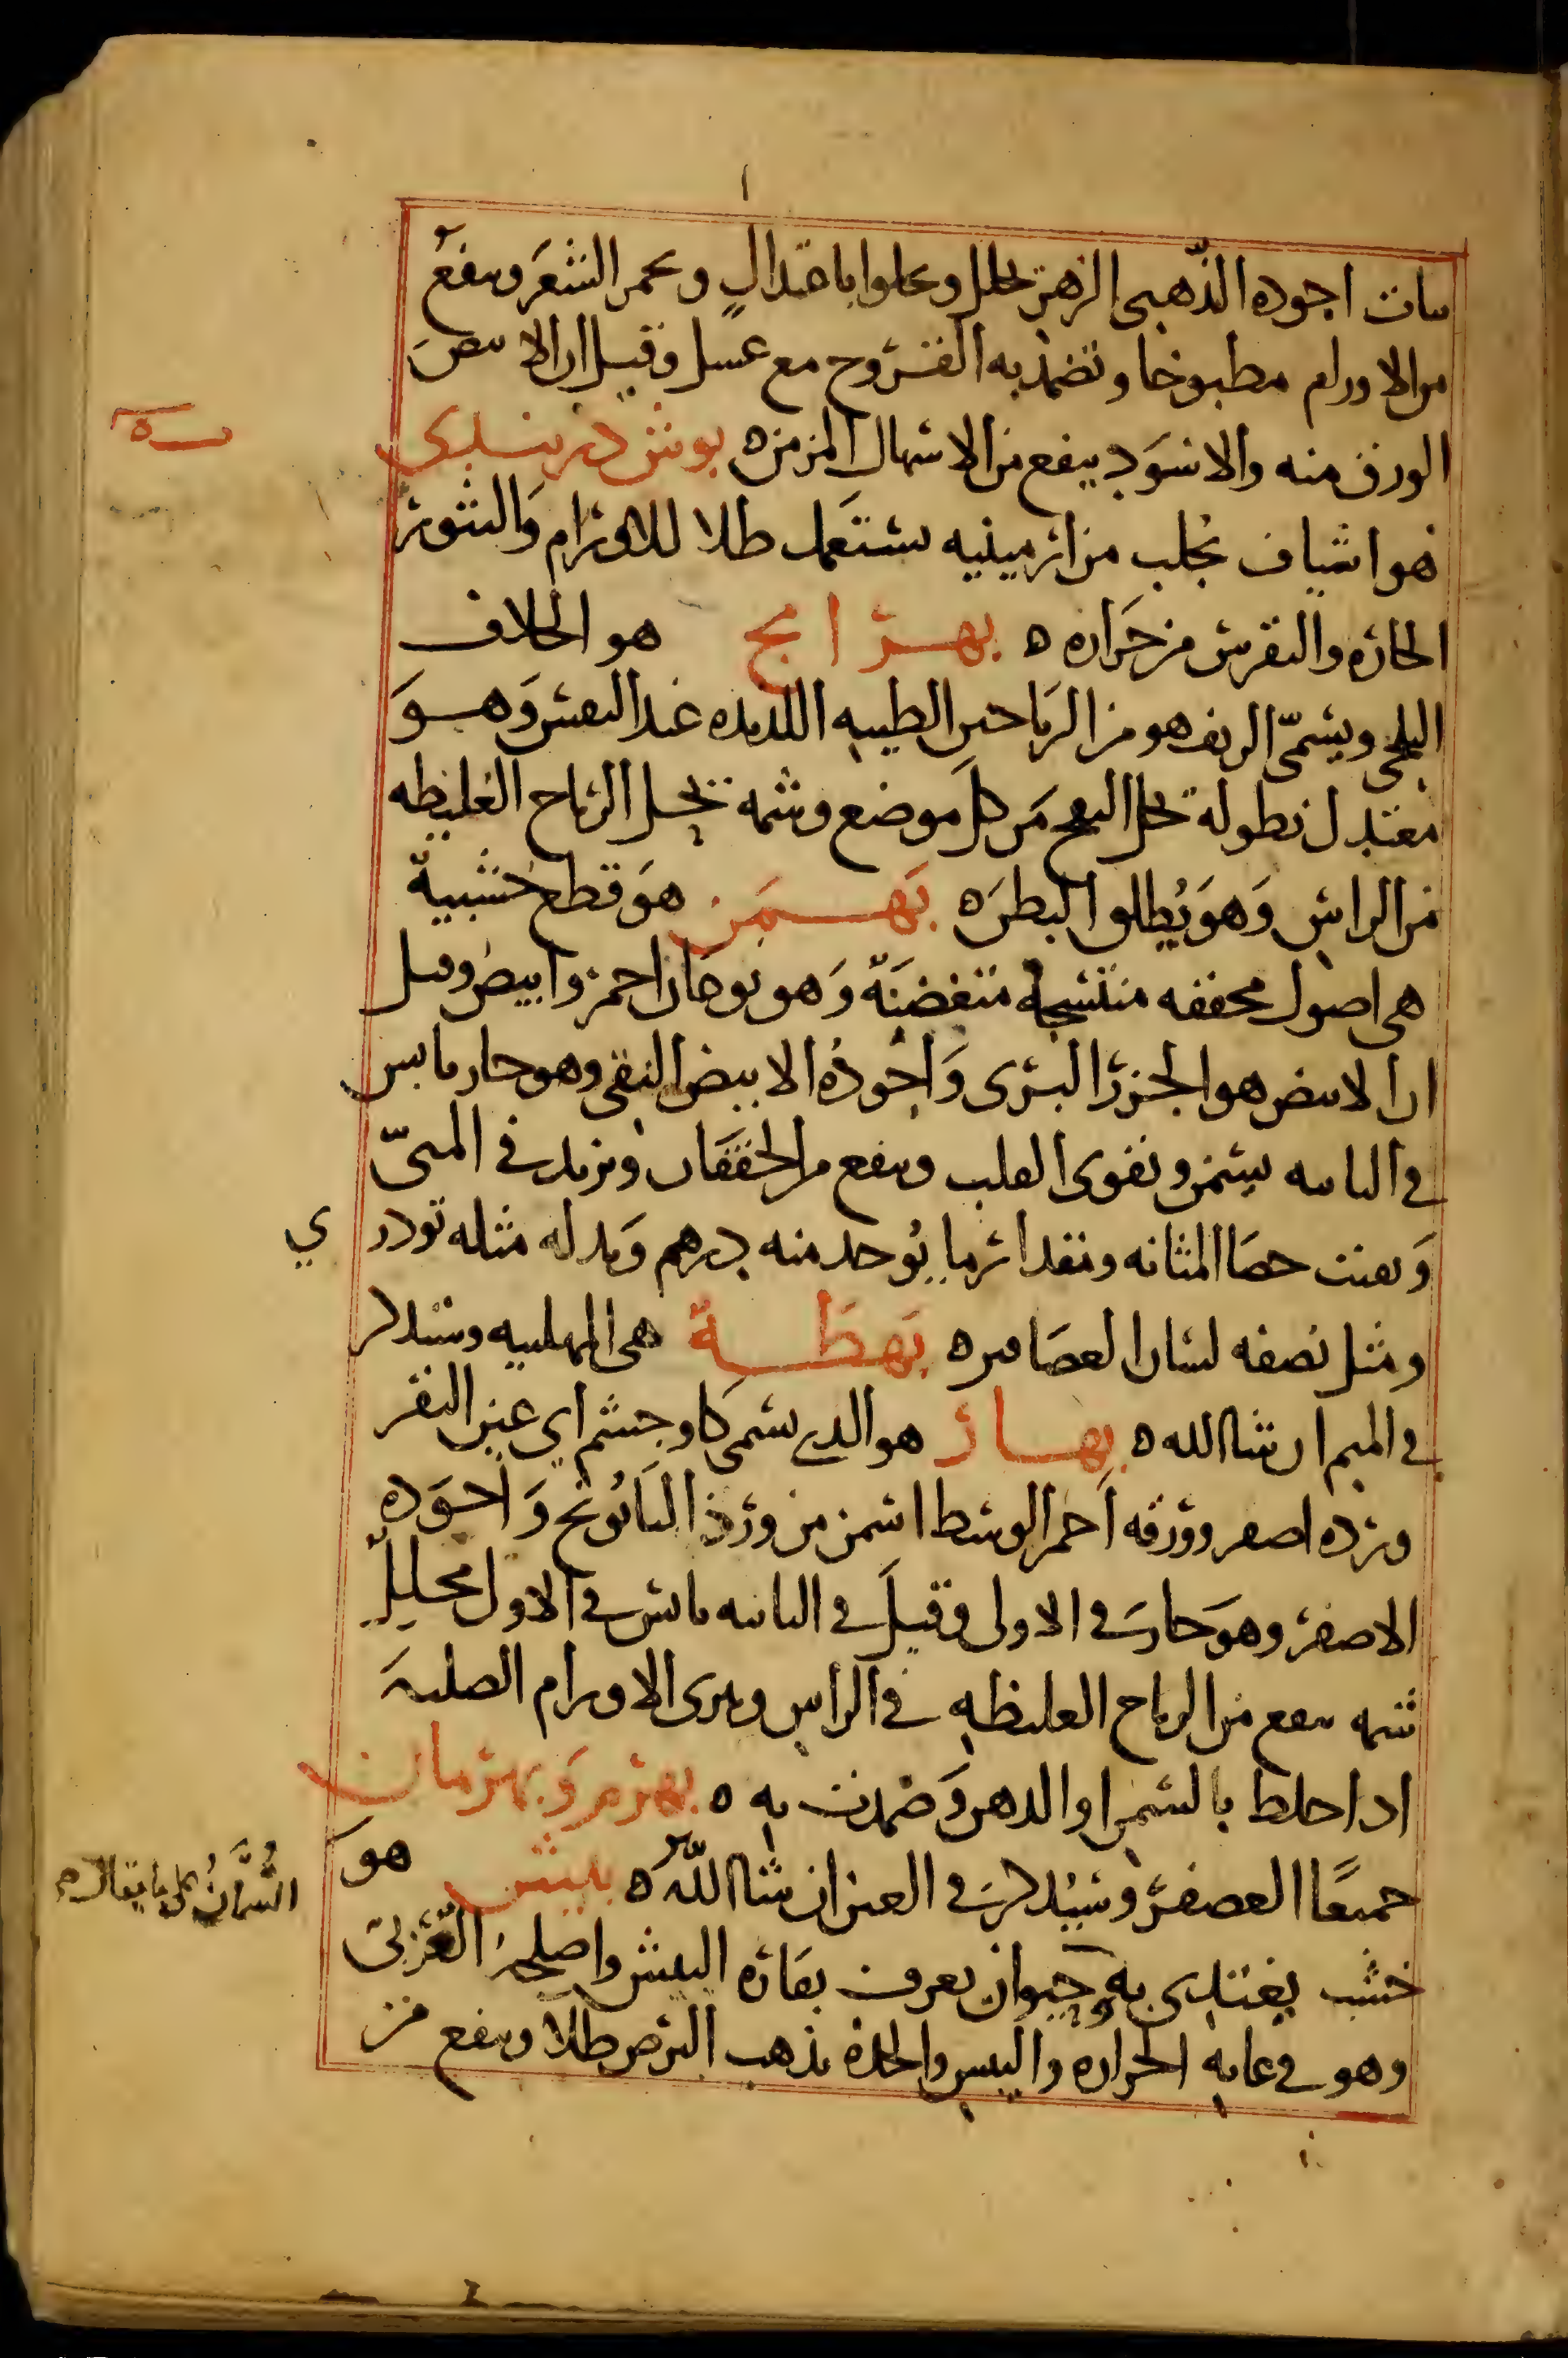 نبات اجوده الذهبى الزهر يحلل ويجلوا باعتدالٍ ويحمر الشعَر وينفعُ
من الاورام مطبوخا وتضمد به القروح مع عسل وقيل ان الابيض
الورق منه والاسوَد ينفع من الاسهال المزمن ه بوش دربندى
هو اشياف تجلب من ارمينيه يستعمل طلا للاورام وَالبثور
الحاره والنقرس من حَراره ه بهرامج هو الخلاف
البلخى ويسمّى الرنف هو من الرَياحين الطيبه اللذيذه عند النفس وَهوَ
معتدل نطوله يحل النفخ مَن كل موضع وشمه يحلل الرياح الغليظه
من الراس وَهوَ يُطلوا البطن ه بَهمَن هوَ قطع خشبية
هى اصول مجففه متشنجة متغضنَة وَهو نوعان احمر وابيض وقيل
ان الابيض هو الجزر البرى وَاجُودهُ الابيض النقى وهو حار يابس
فى الثانيه يسمن ويقوى القلب وينفع من الخفقَان ويزيد فى المنىّ
وَيفتت حصَا المثانه ومقدار ما يُوخد منه درهم وَبدله مثله تودري
ومثل نصفه لسان العصَافير ه بَهطَة هى المهلبيه وستدكر
فى الميم ان شا الله ه بهار هو الدى يسمى كاوجشم اي عين البقر
ورده اصفر وورقه اَحمر الوسط اسمن من ورد البَابُونج وَاجوَده
الاصفر وهوَ حار فى الاولى وقيلَ فى الثانيه يابس فى الاول محللٌ
شمه ينفع من الرياح الغليظهِ فى الراس ويبرى الاورام الصلبه
ادا خلط بالشمع او الدهن وَضمدت به ه بهرم وَبهرمان
جميعًا العصفر وسَيُدكر فى العين ان شا اللّه ه بيش هوَ
خشب يغتدى به حيوان يعرف بفاره البيش واصلحه العَرَبى
وهو فى غايه الحراره واليبس والحدة يذهب البرص طلآ وينفع من